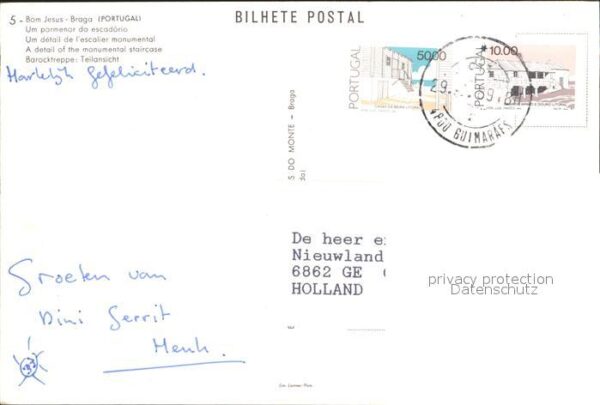 5 - Bom Jesus - Braga (PORTUGAL)
Um pormenor da escadório
Um détail de l'escalier monumental
A detail of the monumental staircase
Barocktreppe: Teilansicht
BILHETE POSTAL
Hartelijk gefeliciteerd.
PORTUGAL
5000
PORTUGAL
10.00
4800 GUIMARÃES
S DO MONTE - Braga
De heer e
Nieuwland
6862 GE
HOLLAND
privacy protection
Datenschutz
Groeten van
Dini Gerrit
Henk.